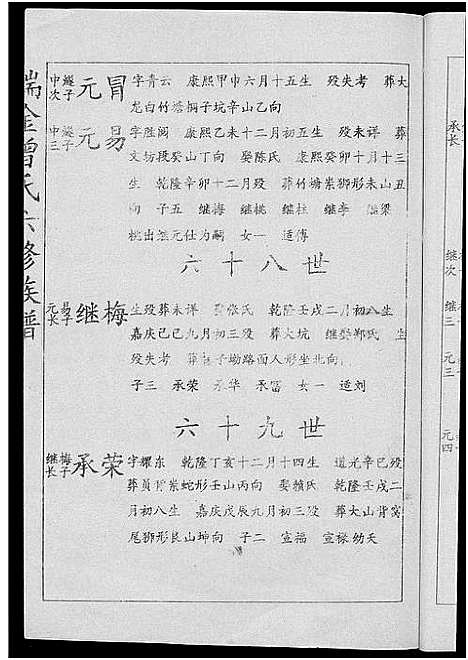 瑞金曾氏六修族谱
中次 继子 元冒 字青云 康熙甲午六月十五生 殁失考 葬大
龙白竹塔桐子坑辛山乙向
中三 继子 元易 字胜阅 康熙乙未十二月初五生 殁未详 葬
文坊段癸山丁向 娶陈氏 康熙癸卯十月十三
生 乾隆辛卯十二月殁 葬竹塘岽狮形未山丑
向 子五 继梅 继桃 继柱 继李 继梁
桃出继元仕为嗣 女一 适傅
六十八世
元长 易子 继梅 生殁葬未详 娶张氏 乾隆壬戌二月初八生
嘉庆己巳九月初三殁 葬大坑 继娶郑氏 生
殁失考 葬 子坳路面人形坐北向
子三 承荣 承华 承富 女一 适刘
六十九世
继长 梅子 承荣 字耀东 乾隆丁亥十二月十四生 道光辛巳殁
葬员背岽蛇形壬山丙向 娶赖氏 乾隆壬戌二
月初八生 嘉庆戊辰九月初三殁 葬大山背窝
尾狮形艮山坤向 子二 宣福 宣禄幼夭
承长
继次 继三 元三
元四